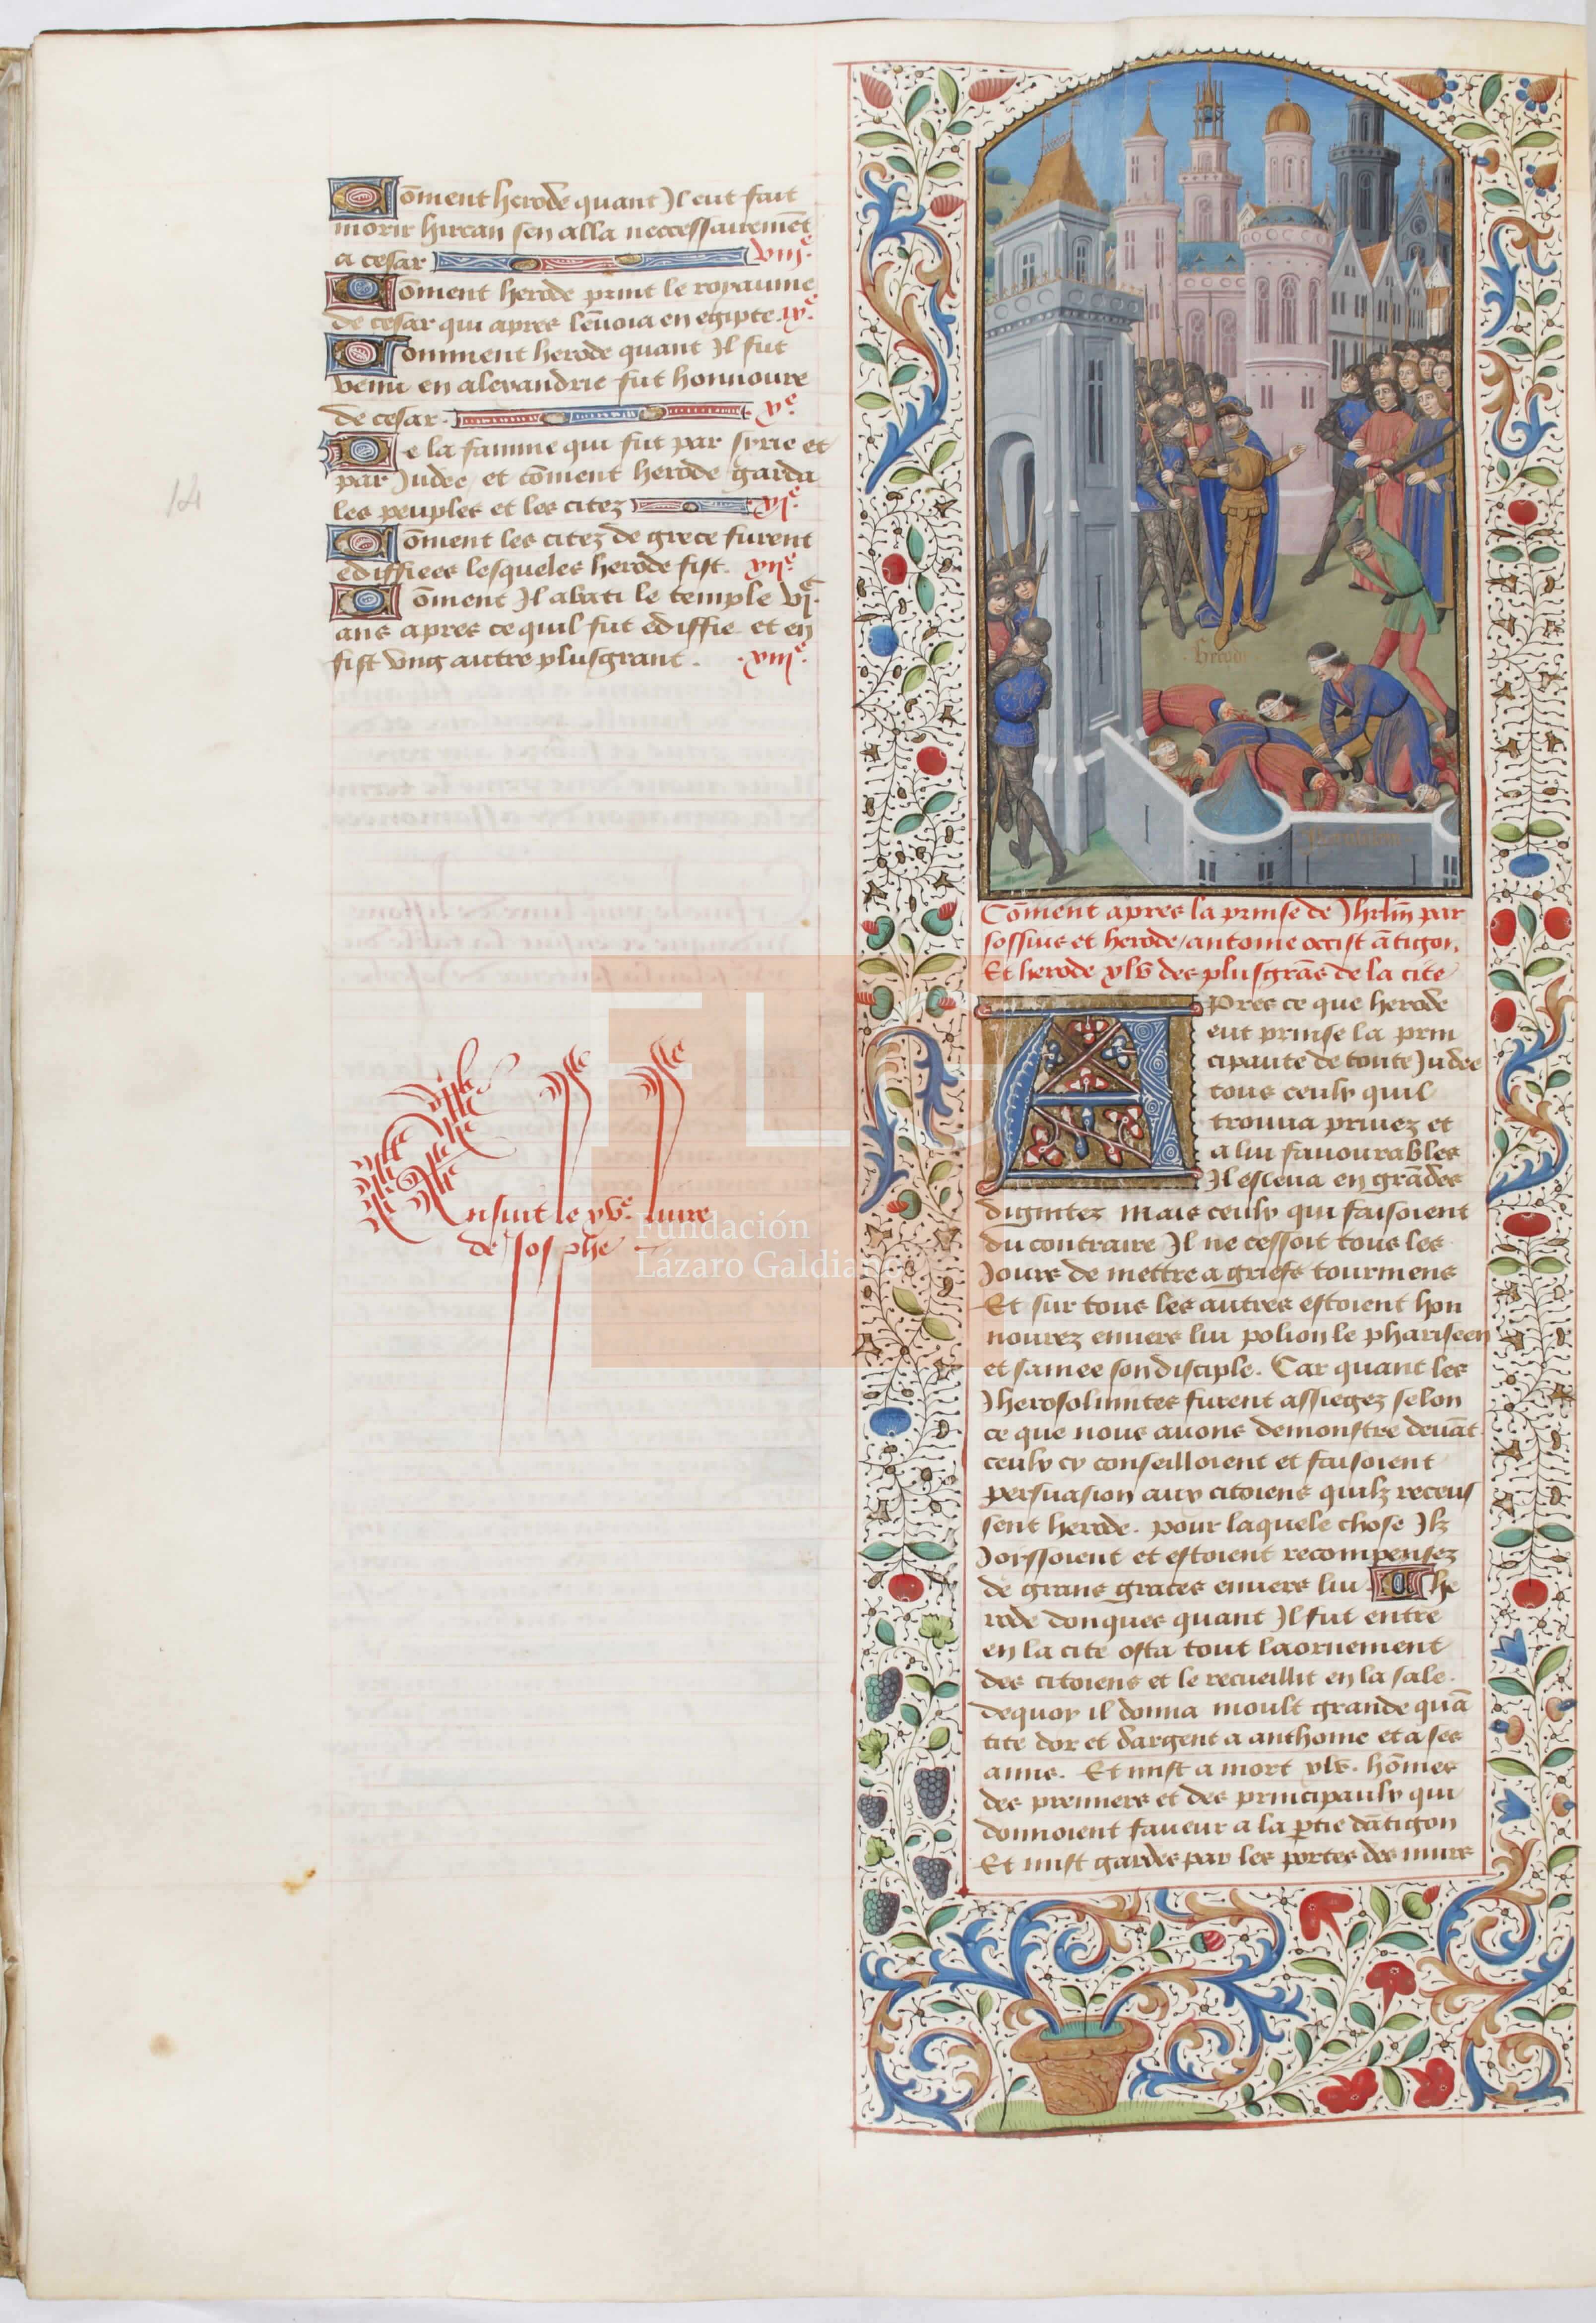 Cōment herode quant Il eut fait
morir hircan sen alla neccessairemēt
a cesar viij.e
Cōment herode print le royaume
de cesar qui apres lēuoia en egipte. ix.e
Comment herode quant Il fut
venu en alexandrie fut honnoure
de cesar. x.e
De la famine qui fut par syrie et
par Judee / et cōment herode garda
les peuples et les citez xi.e
Cōment les citez de grece furent
ediffiees lesqueles herode fist. xii.e
Cōment Il abati le temple vi.e
ans apres ce quil fut ediffie et en
fist vng autre plusgrant. .xiii.e
14
Ensuit le xve. liure
de Josphe
.herode.
Cōment apres la prinse de Jhrlm̄ par
sossius et herode / antoine occist ātigon.
Et herode xlv des plusgrās de la cite
Apres ce que herode
eut prinse la prin
cipaute de toute Judee
tous ceulx quil
trouua priuez et
a lui fauourables
Il esleua en grādes
dignitez mais ceulx qui faisoient
du contraire Il ne cessoit tous les
Jours de mettre a griefs tourmens
Et sur tous les autres estoient hon
nourez enuers lui polion le phariseen
et samee son disciple. Car quant les
Jherosolimites furent assiegez selon
ce que nous auons demonstre deuāt
ceulx cy conseilloient et faisoient
persuasion aux citoiens quilz receus
sent herode. pour laquele chose Ilz
Joissoient et estoient recompensez
de grans graces enuers lui. he
rode donques quant Il fut entre
en la cite osta tout laornement
des citoiens et le recueillit en la sale.
dequoy il donna moult grande quā
tite dor et dargent a anthoine et a ses
amis. Et mist a mort xlv. hōmes
des premiers et des principaulx qui
donnoient faueur a la ꝑtie dātigon
Et mist gardes par les portes des murs
FLG
Fundación
Lázaro Galdiano